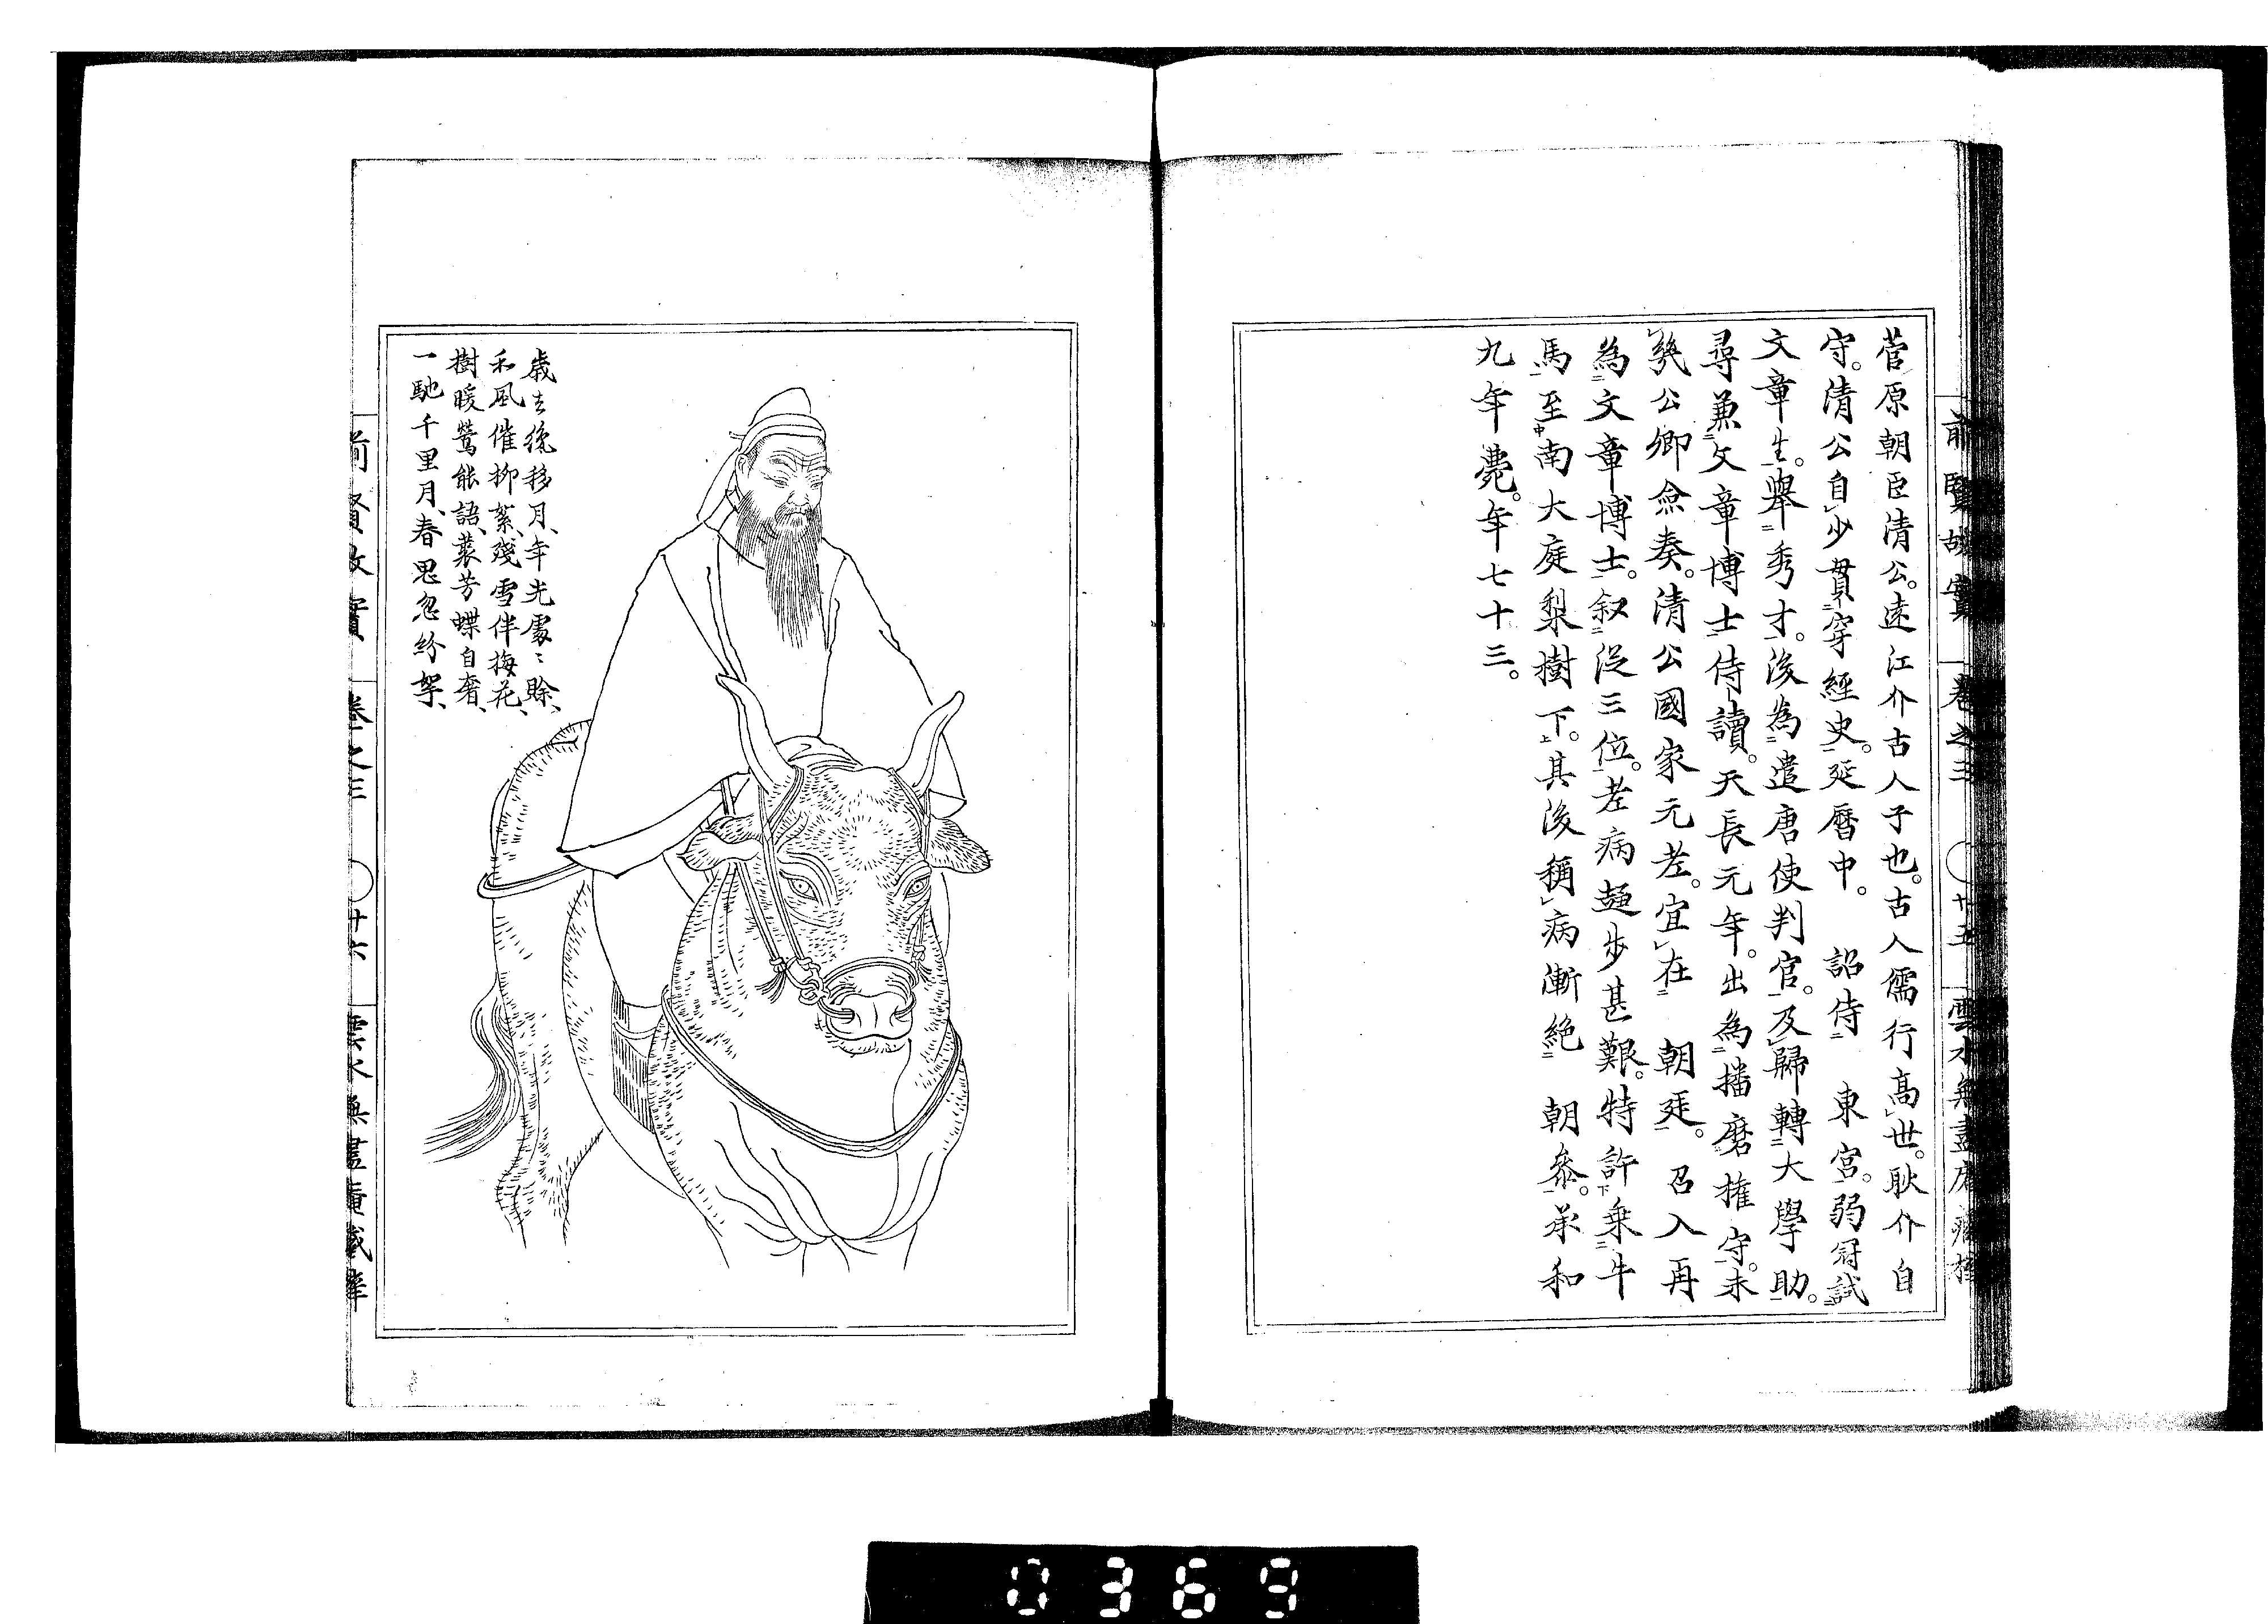 前賢故實
卷之三
廿五
雲水無盡庵藏梓
菅原朝臣清公。遠江介古人子也。古人儒行高世。耿介自
守。清公自少貫穿經史。延曆中。 詔侍 東宮。弱冠試
文章生。舉秀才。後為遣唐使判官。及歸轉大學助。
尋兼文章博士侍讀。天長元年。出為播磨權守。未
幾公卿僉奏。清公國家元老。宜在 朝廷。召入再
為文章博士。叙從三位。老病趨步甚艱。特許乘牛
馬至南大庭梨樹下。其後稱病漸絕 朝參。承和
九年薨。年七十三。
歲去後移月、年光處〻賒、
和風催柳絮、殘雪伴梅花、
樹暖鶯能語、叢芳蝶自奢、
一馳千里月、春思忽紛拏、
前賢故實
卷之三
廿六
雲水無盡庵藏梓
0369